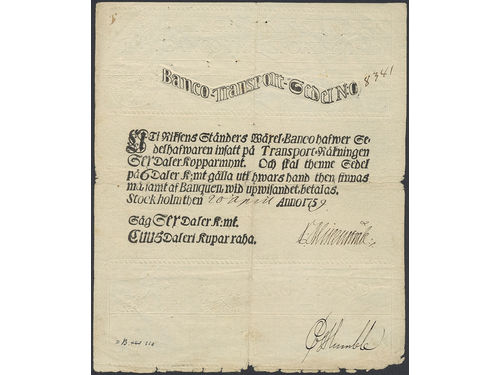 Banco-Transport-Sedel N:o 8341
Uti Riksens Ständers Wäxel-Banco hafwer Se-
delhafwaren insatt på Transport-Räkningen
Sex Daler Kopparmynt. Och skal thenne Sedel
på 6 Daler K:mt gälla uti hwars hand then finnas
må, samt af Banquen, wid upwisandet, betalas.
Stockholm then 20 April Anno 1759
Säg Sex Daler K:mt.
Cuusi Daleri Kupar raha.